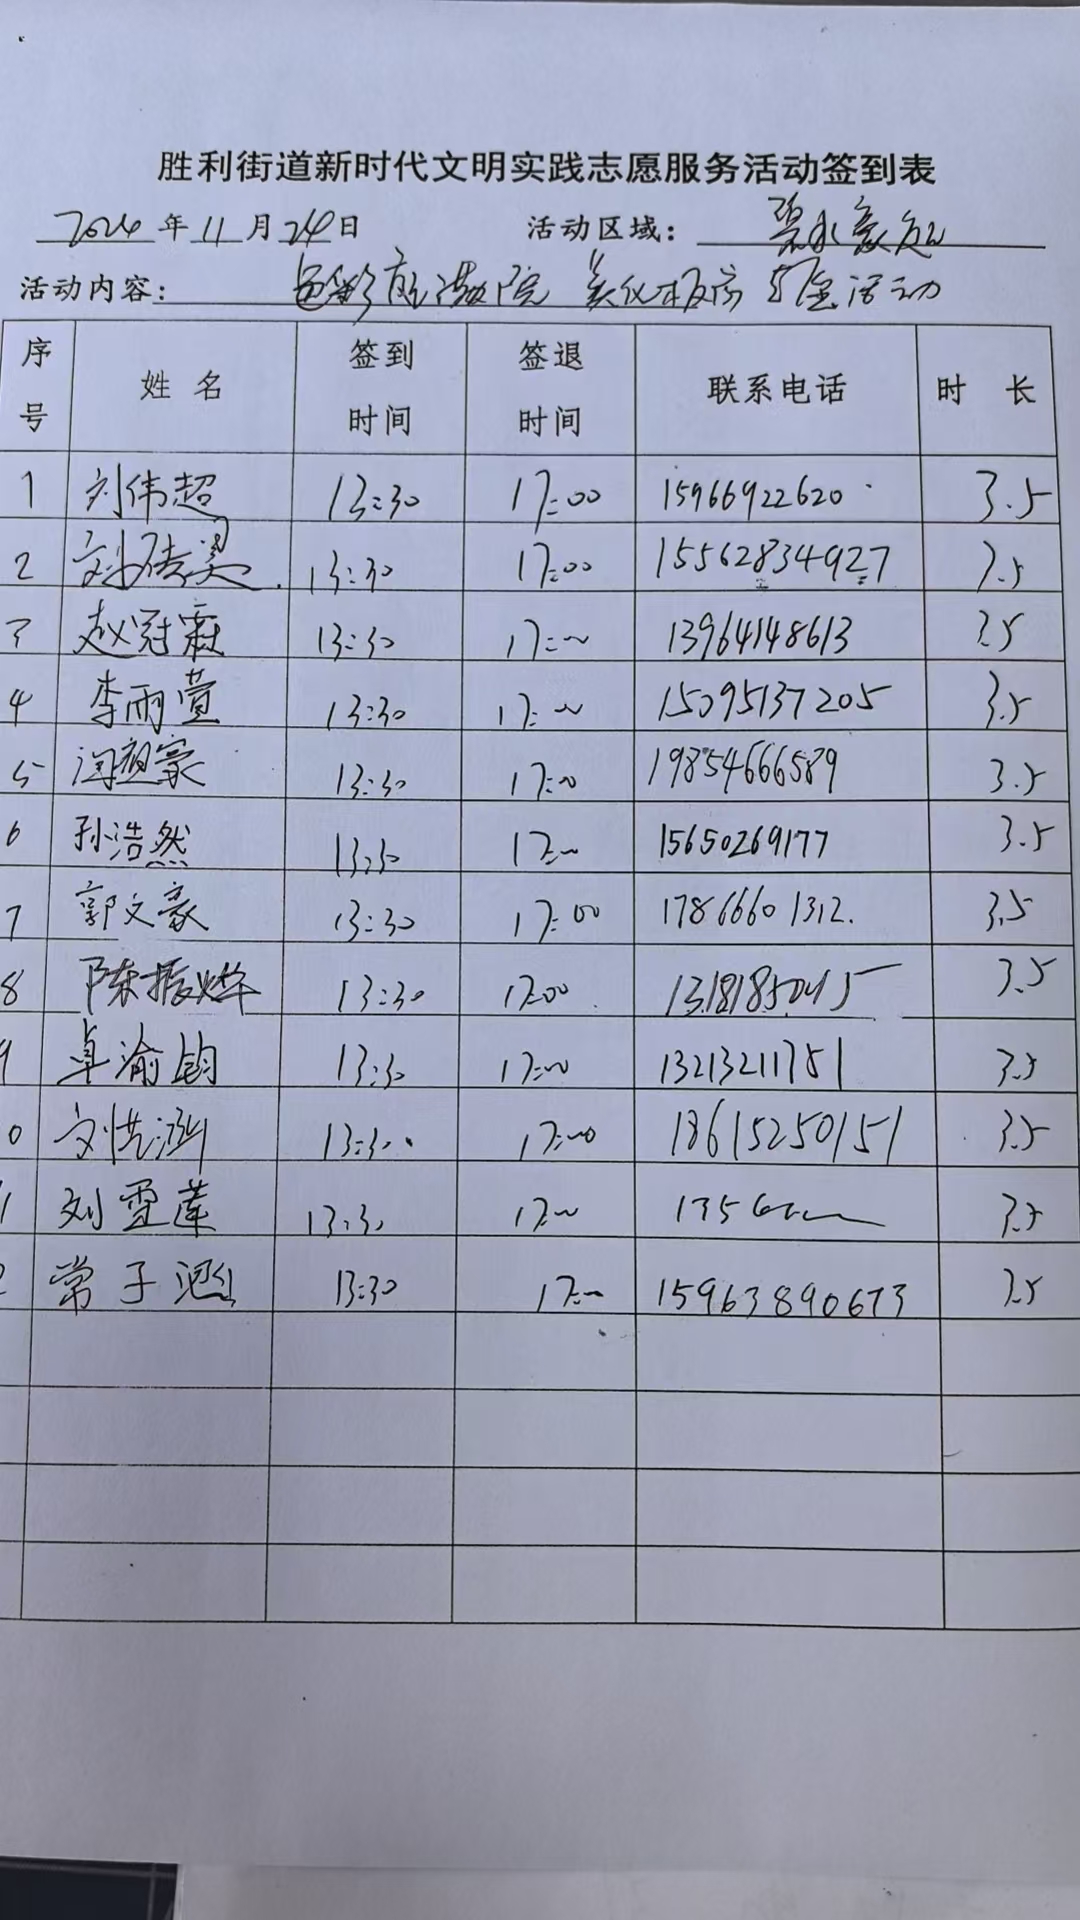 胜利街道新时代文明实践志愿服务活动签到表
2024年11月24日 活动区域:
活动内容: 活动
序号 姓名 签到时间 签退时间 联系电话 时长
1 刘伟超 13:30 17:00 15966922620 3.5
2 13:30 17:00 15562834927 3.5
3 赵冠霖 13:30 17:00 13964148613 3.5
4 李雨萱 13:30 17:00 15095137205 3.5
5 闫祖豪 13:30 17:00 19854666589 3.5
6 孙浩然 13:30 17:00 15650269177 3.5
7 郭文豪 13:30 17:00 17866601312. 3.5
8 陈振烨 13:30 17:00 3.5
9 卓渝钧 13:30 17:00 13213211751 3.5
0 13:30 17:00 18615250151 3.5
1 刘雪莲 13:30 17:00 3.5
2 常子涵 13:30 17:00 15963890673 3.5